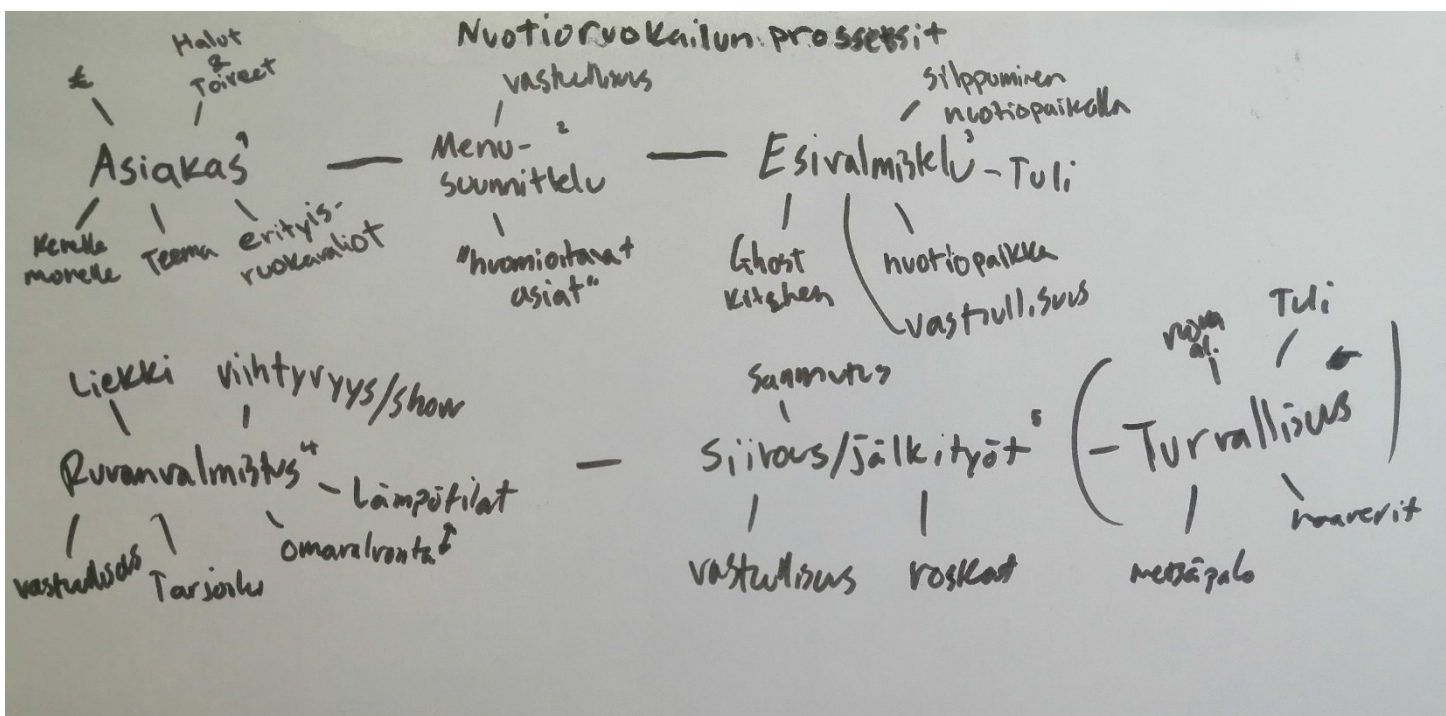 Nuotioruokailun prossessit
€
Halut
&
Toiveet
Asiakas 1
Kenelle
monelle
Teema
erityis-
ruokavaliot
vastuullisuus
Menu- 2
suunnittelu
"huomioitavat
asiat"
silppuminen
nuotiopaikalla
Esivalmistelu 3 - Tuli
Ghost
kitchen
nuotiopaikka
vastuullisuus
Liekki
viihtyvyys/show
Ruuanvalmistus 4
- Lämpötilat
omavalvonta
vastuullisuus
Tarjoilu
Sammutus
Siivous/jälkityöt 5
vastuullisuus
roskat
Tuli
(- Turvallisuus)
metsäpalo
haaverit